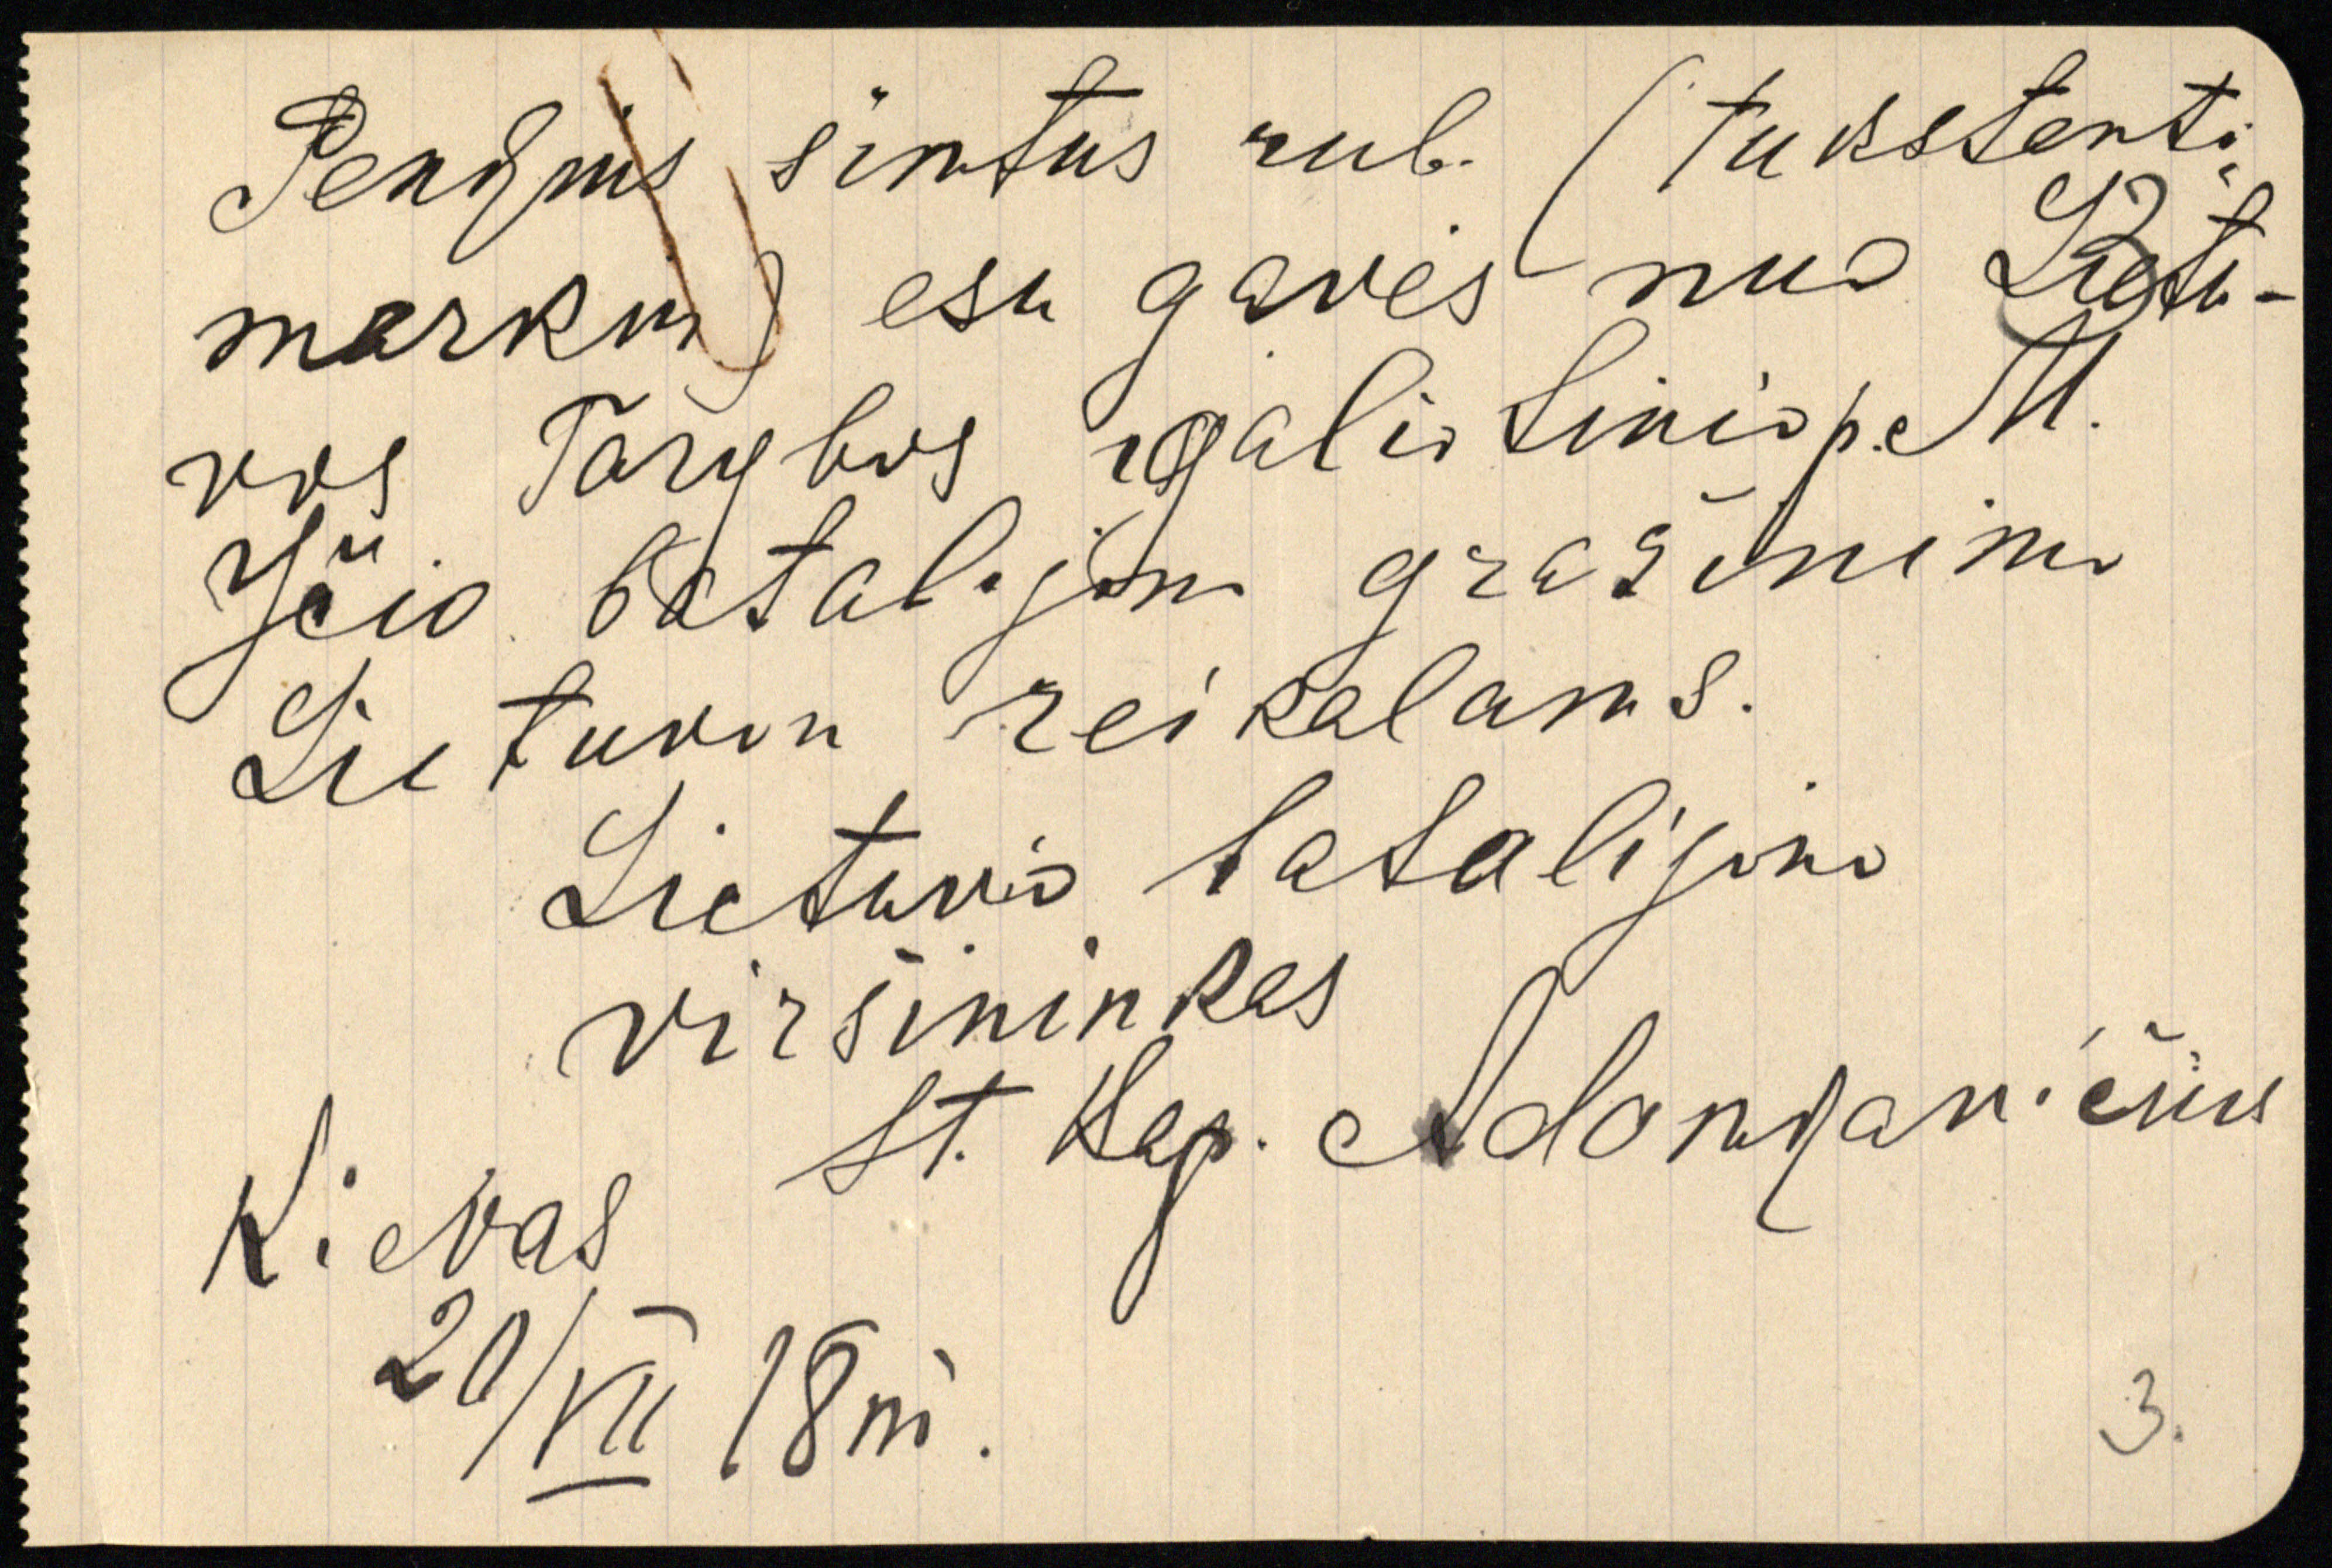 Penkius šimtus rub. (tukstanti
markių) esu gavęs nuo Lietu-
vos Tarybos įgaliotinio p. M.
Yčio batalijono gražinimo
Lietuvon reikalams.
Lietuvio batalijono
viršininkas
St. Kap. Adomkavičius
Kievas
20/VII 18 m.
3.